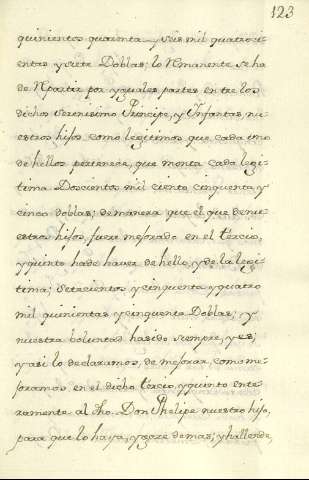 123
quinientos quarenta y seis mil quatroci-
entas y siete Doblas; lo Remanente se ha
de Repartir por yguales partes entre los
dichos Serenisimo Principe, y Infantas nu-
estros hijos, como legitimos que cada uno
de hellos pertenece, que monta cada legi-
tima Doscientos mil ciento cinquenta y
cinco doblas; de manera que el que de nue-
stros hijos, fuere mejorado en el tercio,
y quinto ha de haver de hello, y de la legi-
tima; Setecientos y cinquenta y quatro
mil quinientas y cinquenta Doblas; y
nuestra voluntad ha sido siempre, y es;
y asi lo declaramos, de mejorar, como me-
joramos en el dicho tercio, y quinto ente-
ramente al dho. Don Phelipe nuestro hijo,
para que lo haya, y goze demas; y hallende,